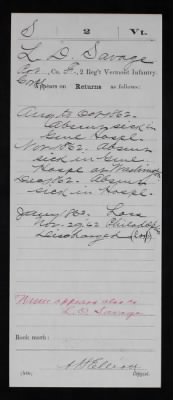 S 2 Vt.
L. D. Savage
Co. F, 2 Reg't Vermont Infantry.
Corp
Appears on Returns as follows:
Aug to Oct 1862.
Absent sick in
Genl Hospl.
Nov. 1862. Absent
sick in Genl
Hospl at Washington
Dec 1862. Absent
sick in Hospl.
Jany 1863. Loss
Nov. 29/62 Philadelphia
Discharged
Name appears also as
L. O. Savage
Book mark:
Copyist.